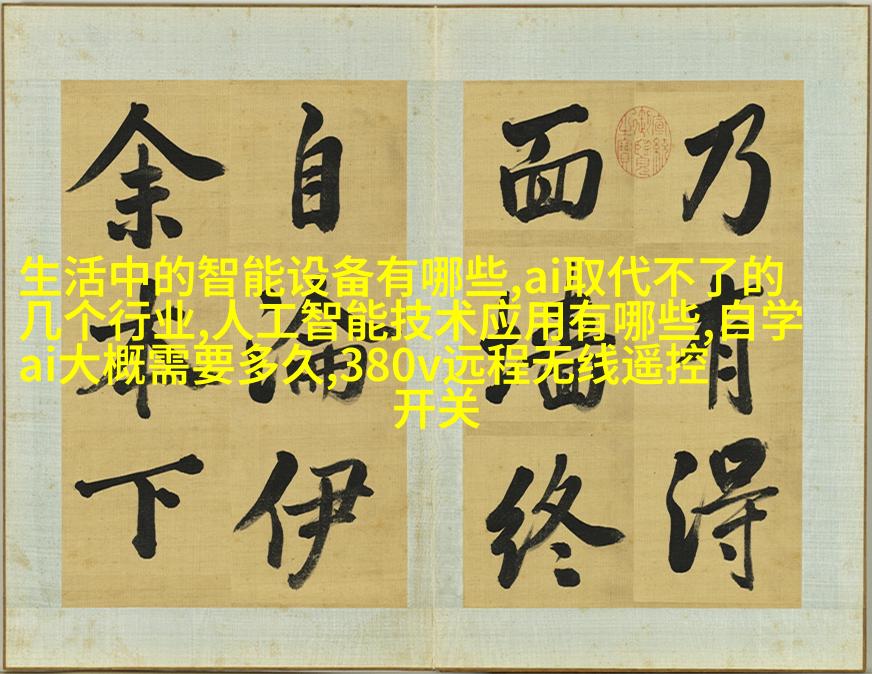 生活中的智能设备有哪些,ai取代不了的
几个行业,人工智能技术应用有哪些,自学
ai大概需要多久,380v远程无线遥控
开关
乃有得
面終
自淪伊
余本下
宣統御覽之寶